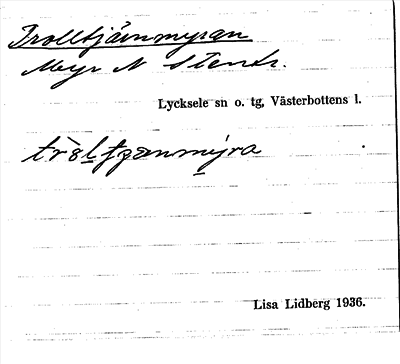 Trolltjärnmyran
Myr N Stentr.
Lycksele sn o. tg, Västerbottens l.
Lisa Lidberg 1936.